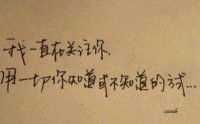 我一直在关注你,
用一切你知道或不知道的方式...